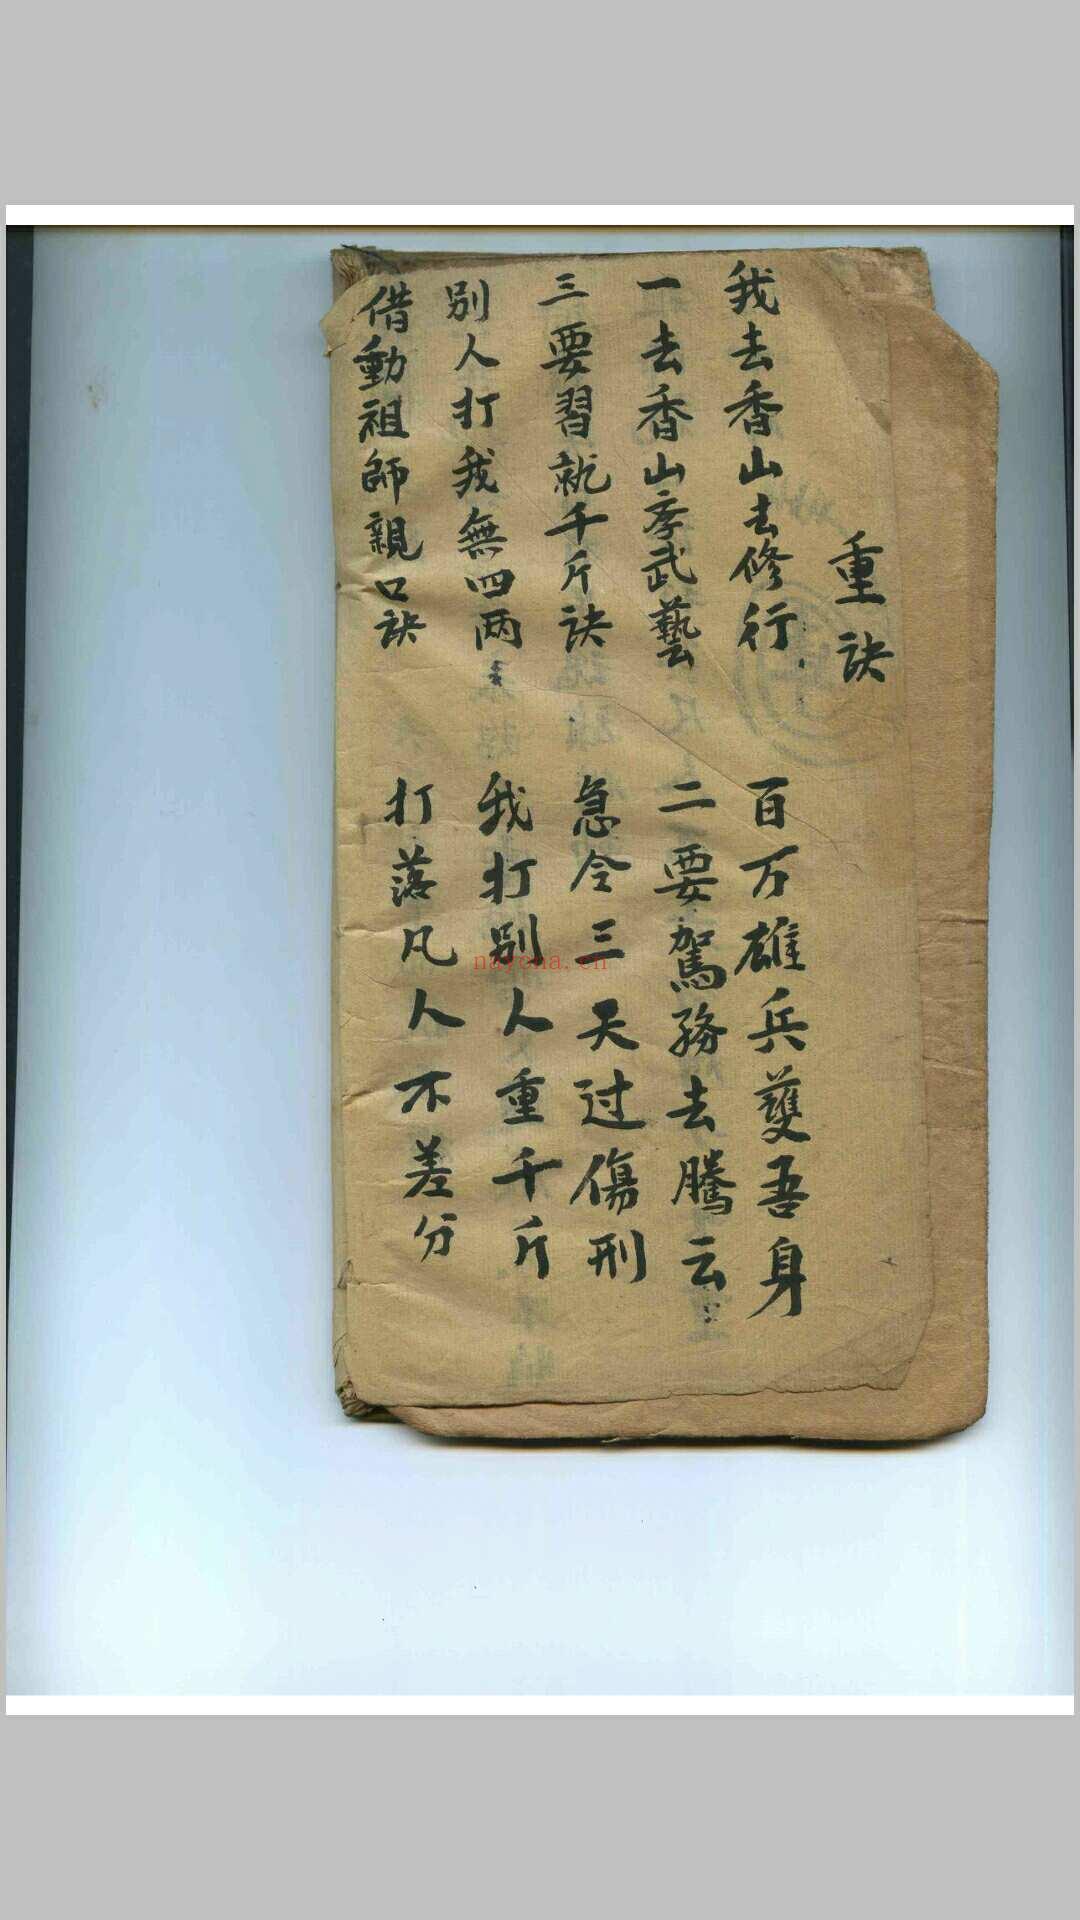 重訣
我去香山去修行 百万雄兵護吾身
一去香山孝武藝 二要駕務去騰云
三要習就千斤訣 急令三天过傷刑
别人打我無四两 我打别人重千斤
借動祖師親口訣 打落凡人不差分
nayona.cn